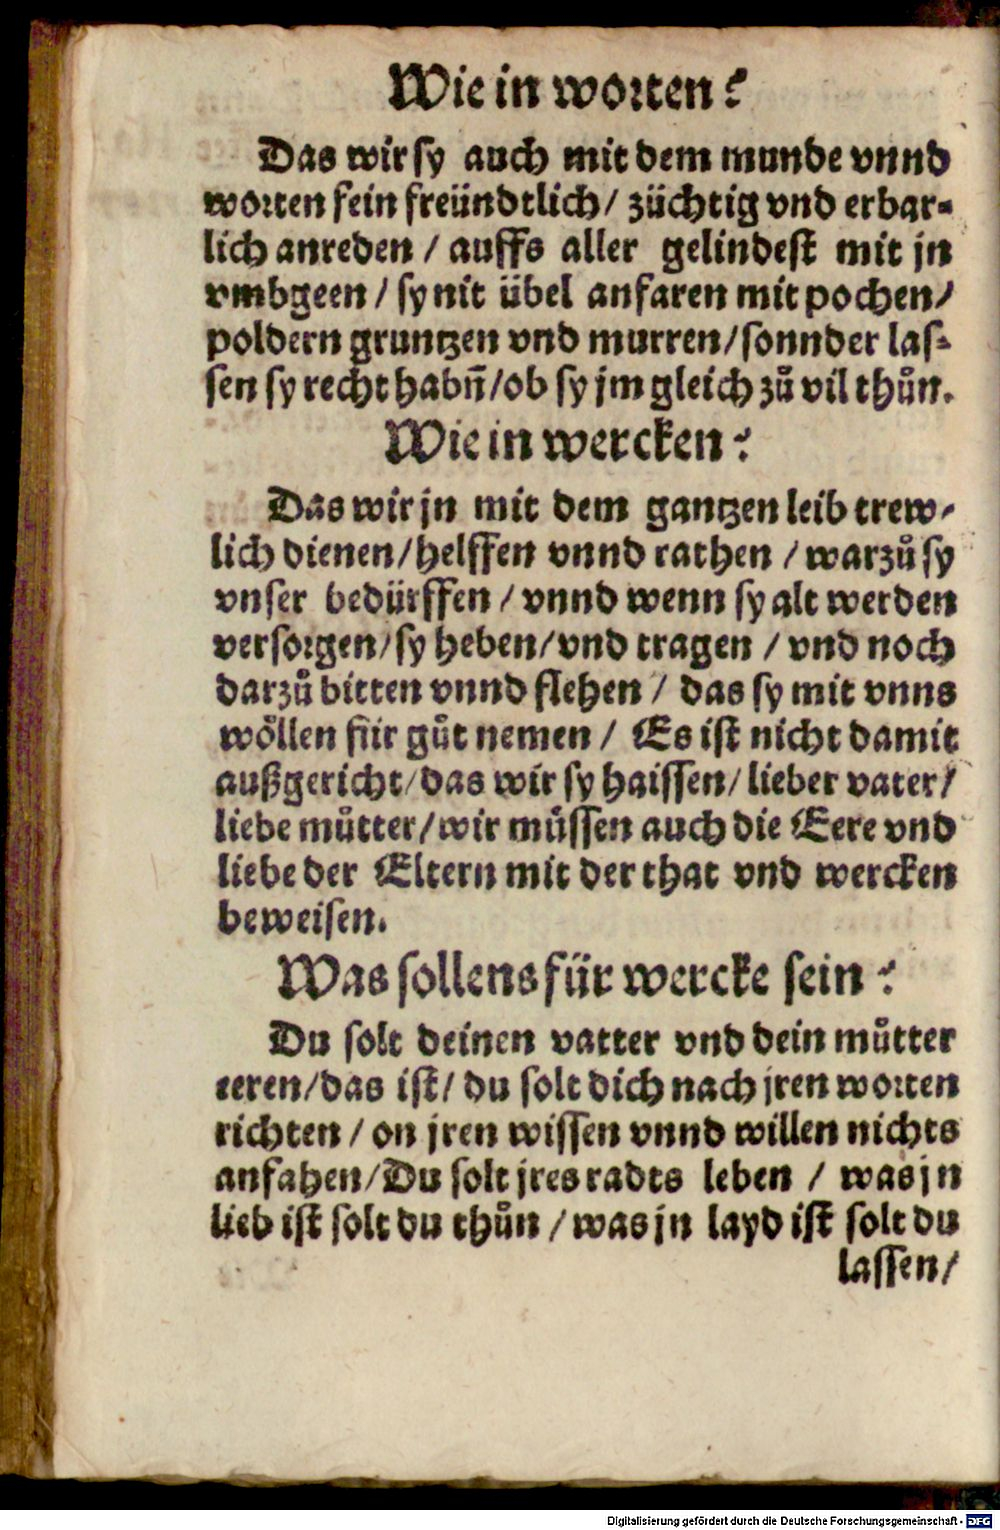 Wie in worten?
Das wir sy auch mit dem munde vnnd
worten fein freündtlich/ züchtig vnd erbar-
lich anreden / auffs aller gelindest mit jn
vmbgeen / sy nit übel anfaren mit pochen/
poldern gruntzen vnd murren/sonnder las-
sen sy recht habn̄/ob sy jm gleich zů vil thůn.
Wie in wercken?
Das wir jn mit dem gantzen leib trew-
lich dienen/helffen vnnd rathen / warzů sy
vnser bedürffen / vnnd wenn sy alt werden
versorgen/sy heben/vnd tragen / vnd noch
darzů bitten vnnd flehen / das sy mit vnns
wöllen für gůt nemen / Es ist nicht damit
außgericht/das wir sy haissen/ lieber vater/
liebe můtter/wir müssen auch die Eere vnd
liebe der Eltern mit der that vnd wercken
beweisen.
Was sollens für wercke sein?
Du solt deinen vatter vnd dein můtter
eeren/das ist/ du solt dich nach jren worten
richten / on jren wissen vnnd willen nichts
anfahen/Du solt jres radts leben / was jn
lieb ist solt du thůn / was jn layd ist solt du
lassen/
Digitalisierung gefördert durch die Deutsche Forschungsgemeinschaft - DFG